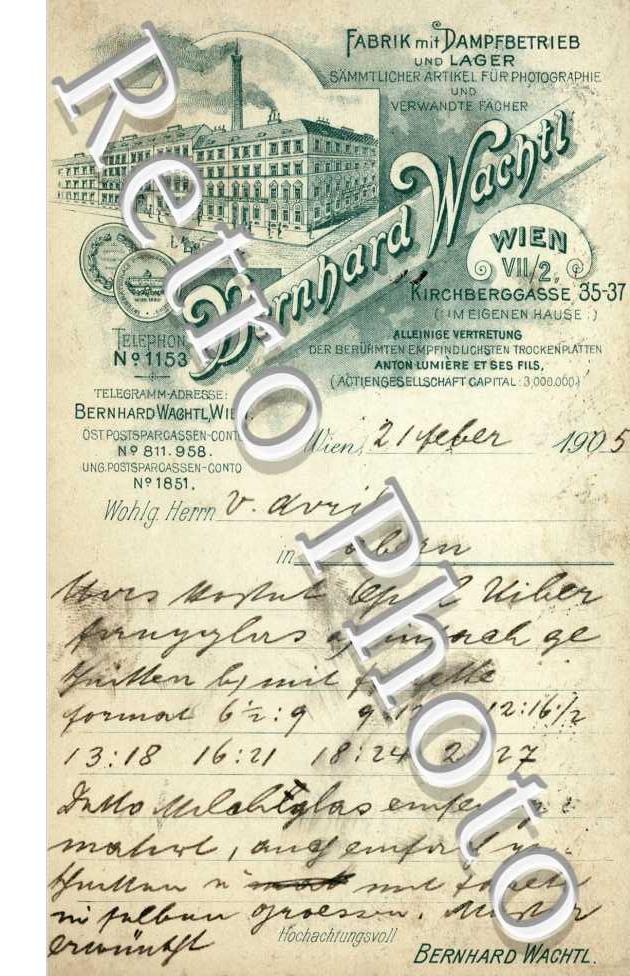 FABRIK mit DAMPFBETRIEB
UND LAGER
SÄMMTLICHER ARTIKEL FÜR PHOTOGRAPHIE
UND
VERWANDTE FÄCHER
Bernhard Wachtl
WIEN
VII/2,
KIRCHBERGGASSE 35-37
(: IM EIGENEN HAUSE :)
ALLEINIGE VERTRETUNG
DER BERÜHMTEN EMPFINDLICHSTEN TROCKENPLATTEN
ANTON LUMIÈRE ET SES FILS,
(ACTIENGESELLSCHAFT CAPITAL: 3,000.000.)
TELEPHON
No 1153
TELEGRAMM-ADRESSE:
BERNHARD WACHTL, WIEN.
ÖST. POSTSPARCASSEN-CONTO
No 811.958.
UNG. POSTSPARCASSEN-CONTO
No 1851.
Wien, 21 feber 1905
Wohlg. Herrn V. Avril
in
kostet Uiber
fangglas einfach ge
schnitten b) mit
format 6½:9 12:16½
13:18 16:21 18:24 27
Ditto Milchglas
matirt, auch einfach
schnitten u mit
in selben groessen. Muster
erwünscht
Hochachtungsvoll
BERNHARD WACHTL.
Retro Photo